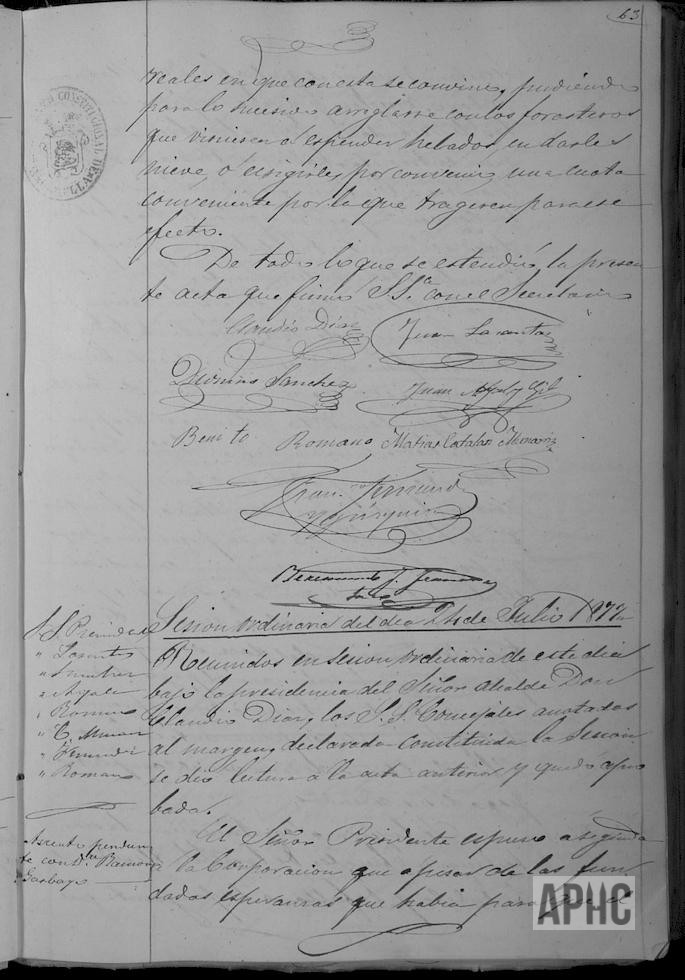 63
reales en que con esta se convino, pudiendo
para lo sucesivo arreglarse con los forasteros
que viniesen á espender helados, en darles
nieve, ó exigirles, por convenio, una cuota
conveniente por la que trageren para ese
efecto.
De todo lo que se estendió la presen
te acta que firmó S.Sª. con el Secretario
Claudio Diaz
Juan
Dionisio Sanchez
Juan Gil
Benito Romano Matias Catalan
Sesion ordinaria del dia 24 de Julio 1877
S.S. Presidente
" Sanchez
" Ayala
" Romano
" C.
" Romano
Reunidos en sesion ordinaria de este dia
bajo la presidencia del Señor Alcalde Don
Claudio Diaz, los S.S. Concejales anotados
al margen, declarada constituida la Sesion
se dió lectura á la acta anterior y quedó apro
bada.
Asunto pendien
te contra Ramon
Garbayo
El Señor Presidente espuso a seguida
á la Corporacion que apesar de las fun
dadas esperanzas que habia para que el
APHC